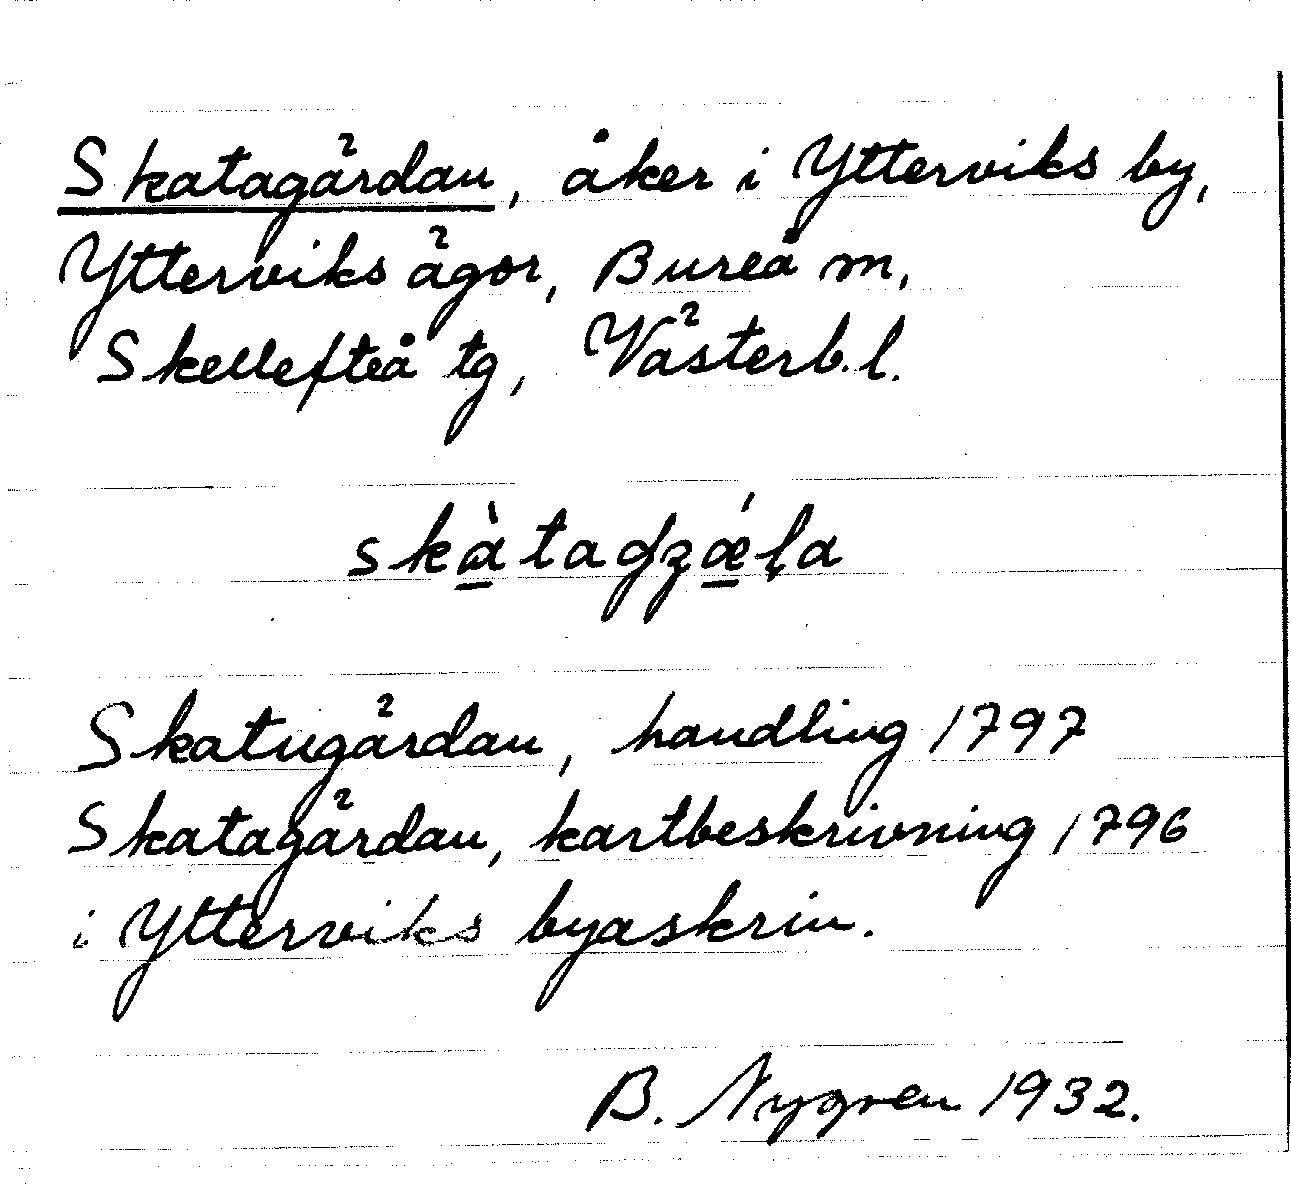 Skatagärdan, åker i Ytterviks by,
Ytterviks ägor, Bureå m,
Skellefteå tg, Västerb. l.
skàtadʒǽḷa
Skatugärdan, handling 1797
Skatagärdan, kartbeskrivning 1796
i Ytterviks byaskrin.
B. Nygren 1932.